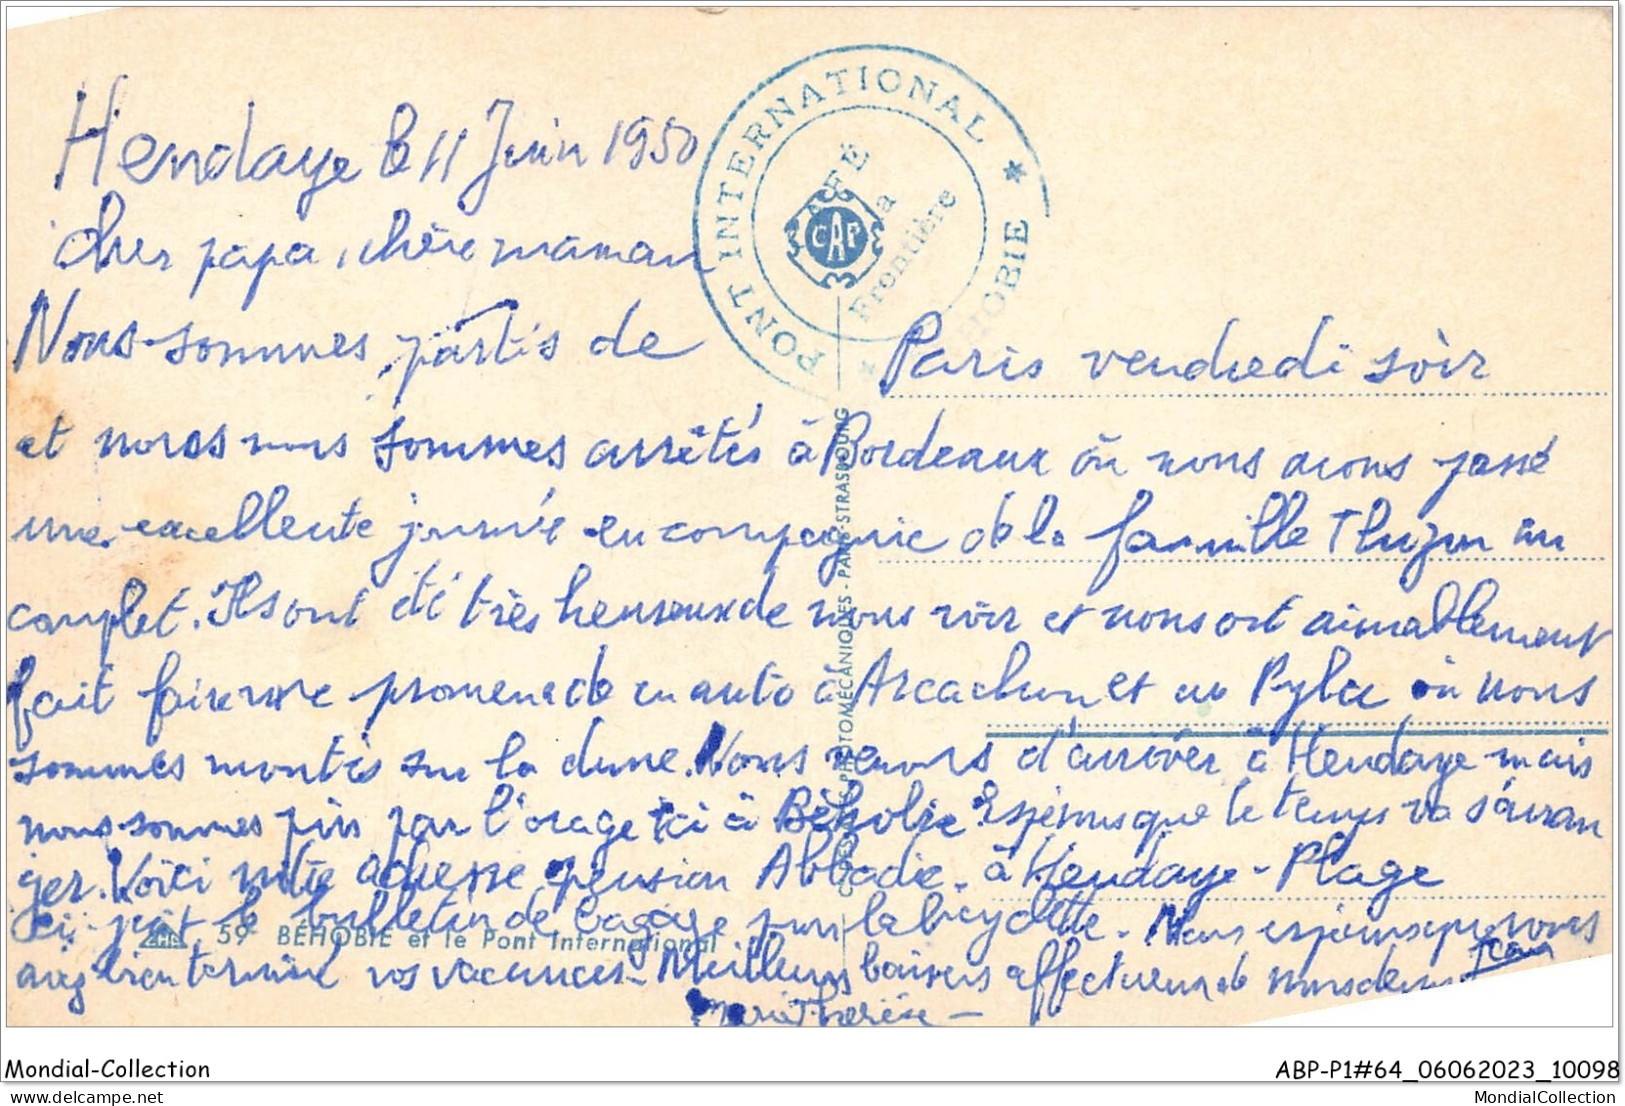 Hendaye le 11 Juin 1950
cher papa, chère maman
Nous sommes partis de Paris vendredi soir
et nous nous sommes arrêtés à Bordeaux où nous avons passé
une excellente journée en compagnie de la famille au
complet. Ils ont été très heureux de nous voir et nous ont aimablement
fait faire une promenade en auto à Arcachon et au Pyla où nous
sommes montés sur la dune. Nous venons d'arriver à Hendaye mais
nous sommes pris par l'orage ici à Béhobie. Espérons que le temps va s'arran
ger. Voici notre adresse pension Abbadie. à Hendaye-Plage
Ci-joint le bulletin de bagage pour la bicyclette. Nous espérons que vous
avez bien terminé vos vacances. Meilleurs baisers affectueux de nous deux Jean
Marie Thérèse
PONT INTERNATIONAL * BEHOBIE *
CAFÉ
la
Frontière
CAP
CAP
PHOTOMÉCANIQUES - PARIS-STRASBOURG
59 BÉHOBIE et le Pont International
Mondial-Collection
ABP-P1#64_06062023_10098
www.mondialcollection.com
MondialCollection